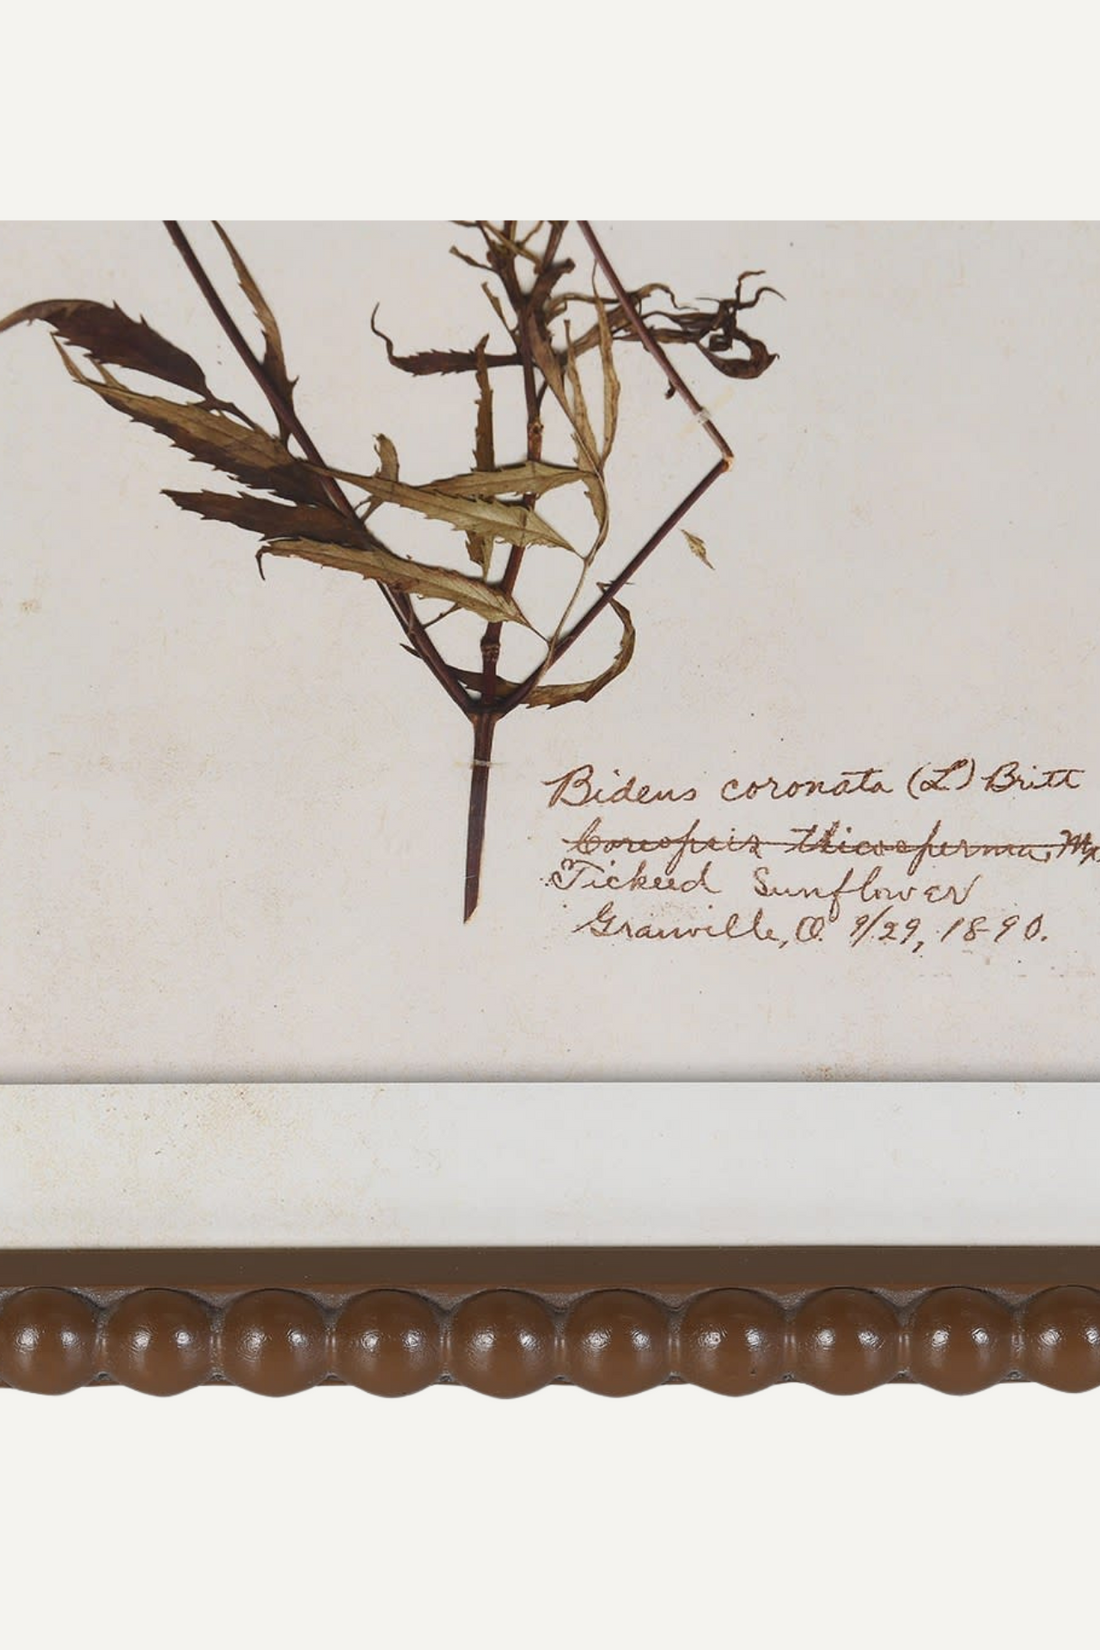 Bidens coronata (L) Britt
Coreopsis tricosperma, Mx
Tickseed Sunflower
Granville, O. 9/29, 1890.